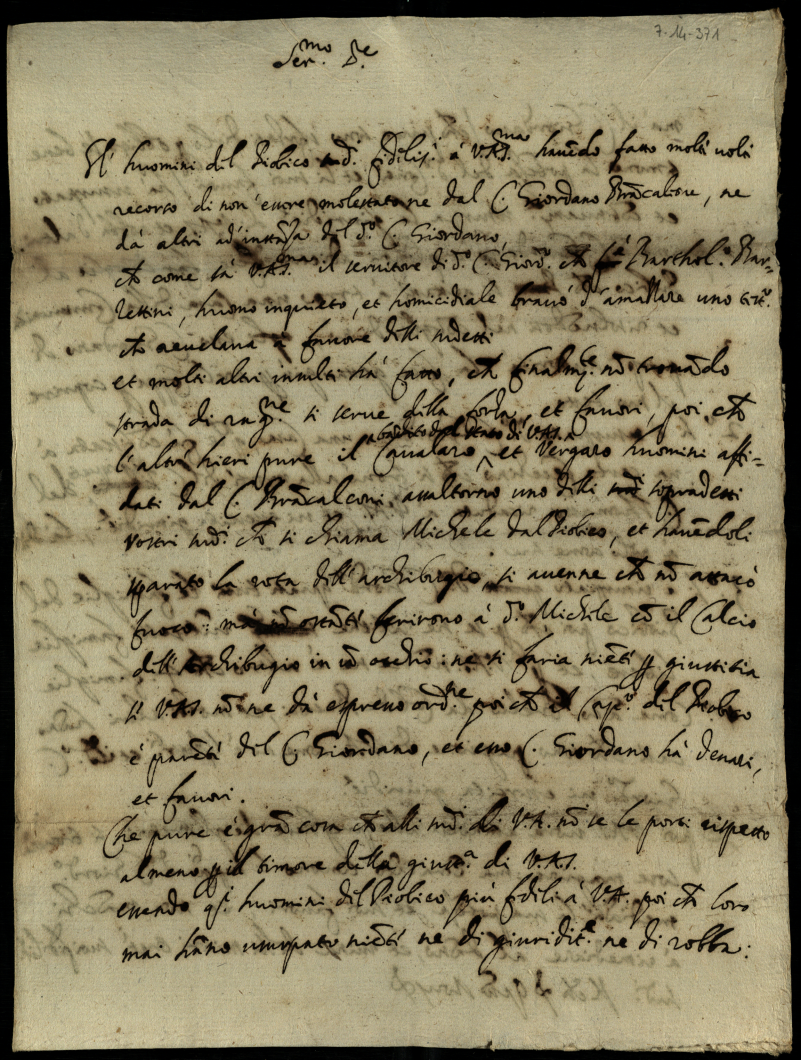 7-14-371
Ser.mo S.re
Gl' huomini del Piobico sud.i fedeliss.i à V.A.S.ma havēdo fatto molte volte
recorso di non' essere molestatone dal C. Giordano Brācalione, ne
dà altri ad' instāza del d.o C. Giordano,
che come sà V.A.S.ma il servitore di d.o C. Giord.o Barthol.o Bar-
tettini, huomo inquieto, et homicidiale bravò d'amazzare uno
che a favore delli sudetti
et molti altri insulti hà fatto, finalm.te nō trovādo
strada di rag.ne si serve della forza, et favori, poi che
l'altr' hieri pure il Cavalaro, abandito dal stato di V.A.S. et Vergaro huomini affi=
dati dal C. Brācalconi assaltorno uno delli sopradetti
vostri sud.i che si chiama Michele dal Piobico, et havēdoli
sparato la rota dell' archibugio, si avenne che nō attacò
fuoco: mà nō ostāte ferirono à d.o Michele cō il Calcio
dell' Archibugio in ū occhio: ne si faria niēte p giustitia
si V.A.S. nō ne dà espresso ord.ne poi che il Cap.o del Piobico
è parēte del C. Giordano, et esso C. Giordano hà denari,
et favori.
Che pure è grā cosa che alli sud.i di V.A. nō se le porti rispetto
almeno p il timore della giust.a di V.A.S.
essendo q.i huomini del Piobico più fedeli à V.A. poi che loro
mai hāno usurpato niēte ne di giuridit.e ne di robba: